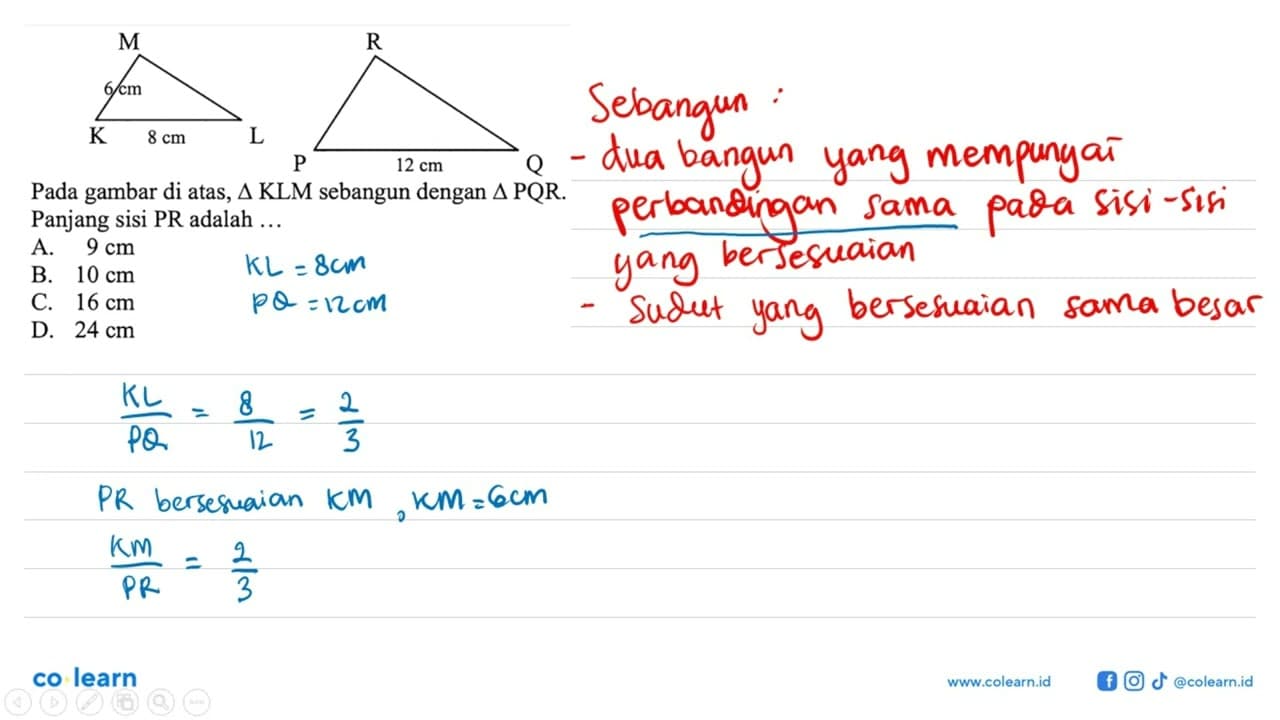 M
R
6 cm
K 8 cm L
P 12 cm Q
Pada gambar di atas, Δ KLM sebangun dengan Δ PQR.
Panjang sisi PR adalah …
A. 9 cm
B. 10 cm
C. 16 cm
D. 24 cm
KL = 8cm
PQ = 12cm
Sebangun :
- dua bangun yang mempunyai
perbandingan sama pada sisi-sisi
yang bersesuaian
- Sudut yang bersesuaian sama besar
KL/PQ = 8/12 = 2/3
PR bersesuaian KM, KM = 6cm
KM/PR = 2/3
co learn
www.colearn.id
@colearn.id